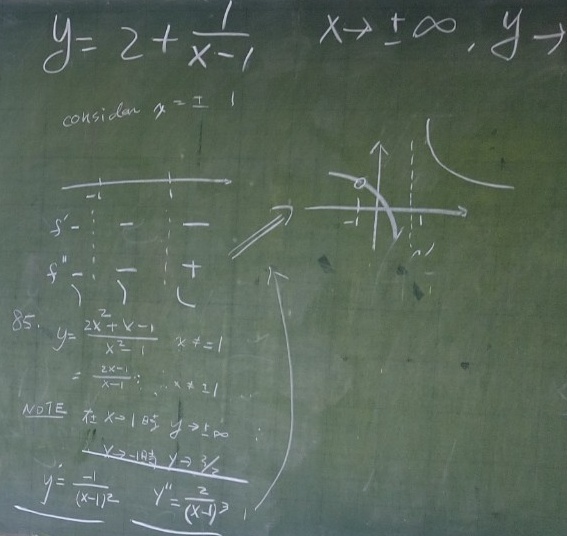 y = 2 + 1/(x-1)    x → ±∞, y →
consider x = ± 1
-1    1
f' - - -
f" - - +
-1    1
85. y = (2x² + x - 1)/(x² - 1)    x ≠ ±1
= (2x-1)/(x-1) ; x ≠ ±1
NOTE 在 x→1 時 y → ±∞
x → -1 時 y → 3/2
y' = -1/(x-1)²    y" = 2/(x-1)³